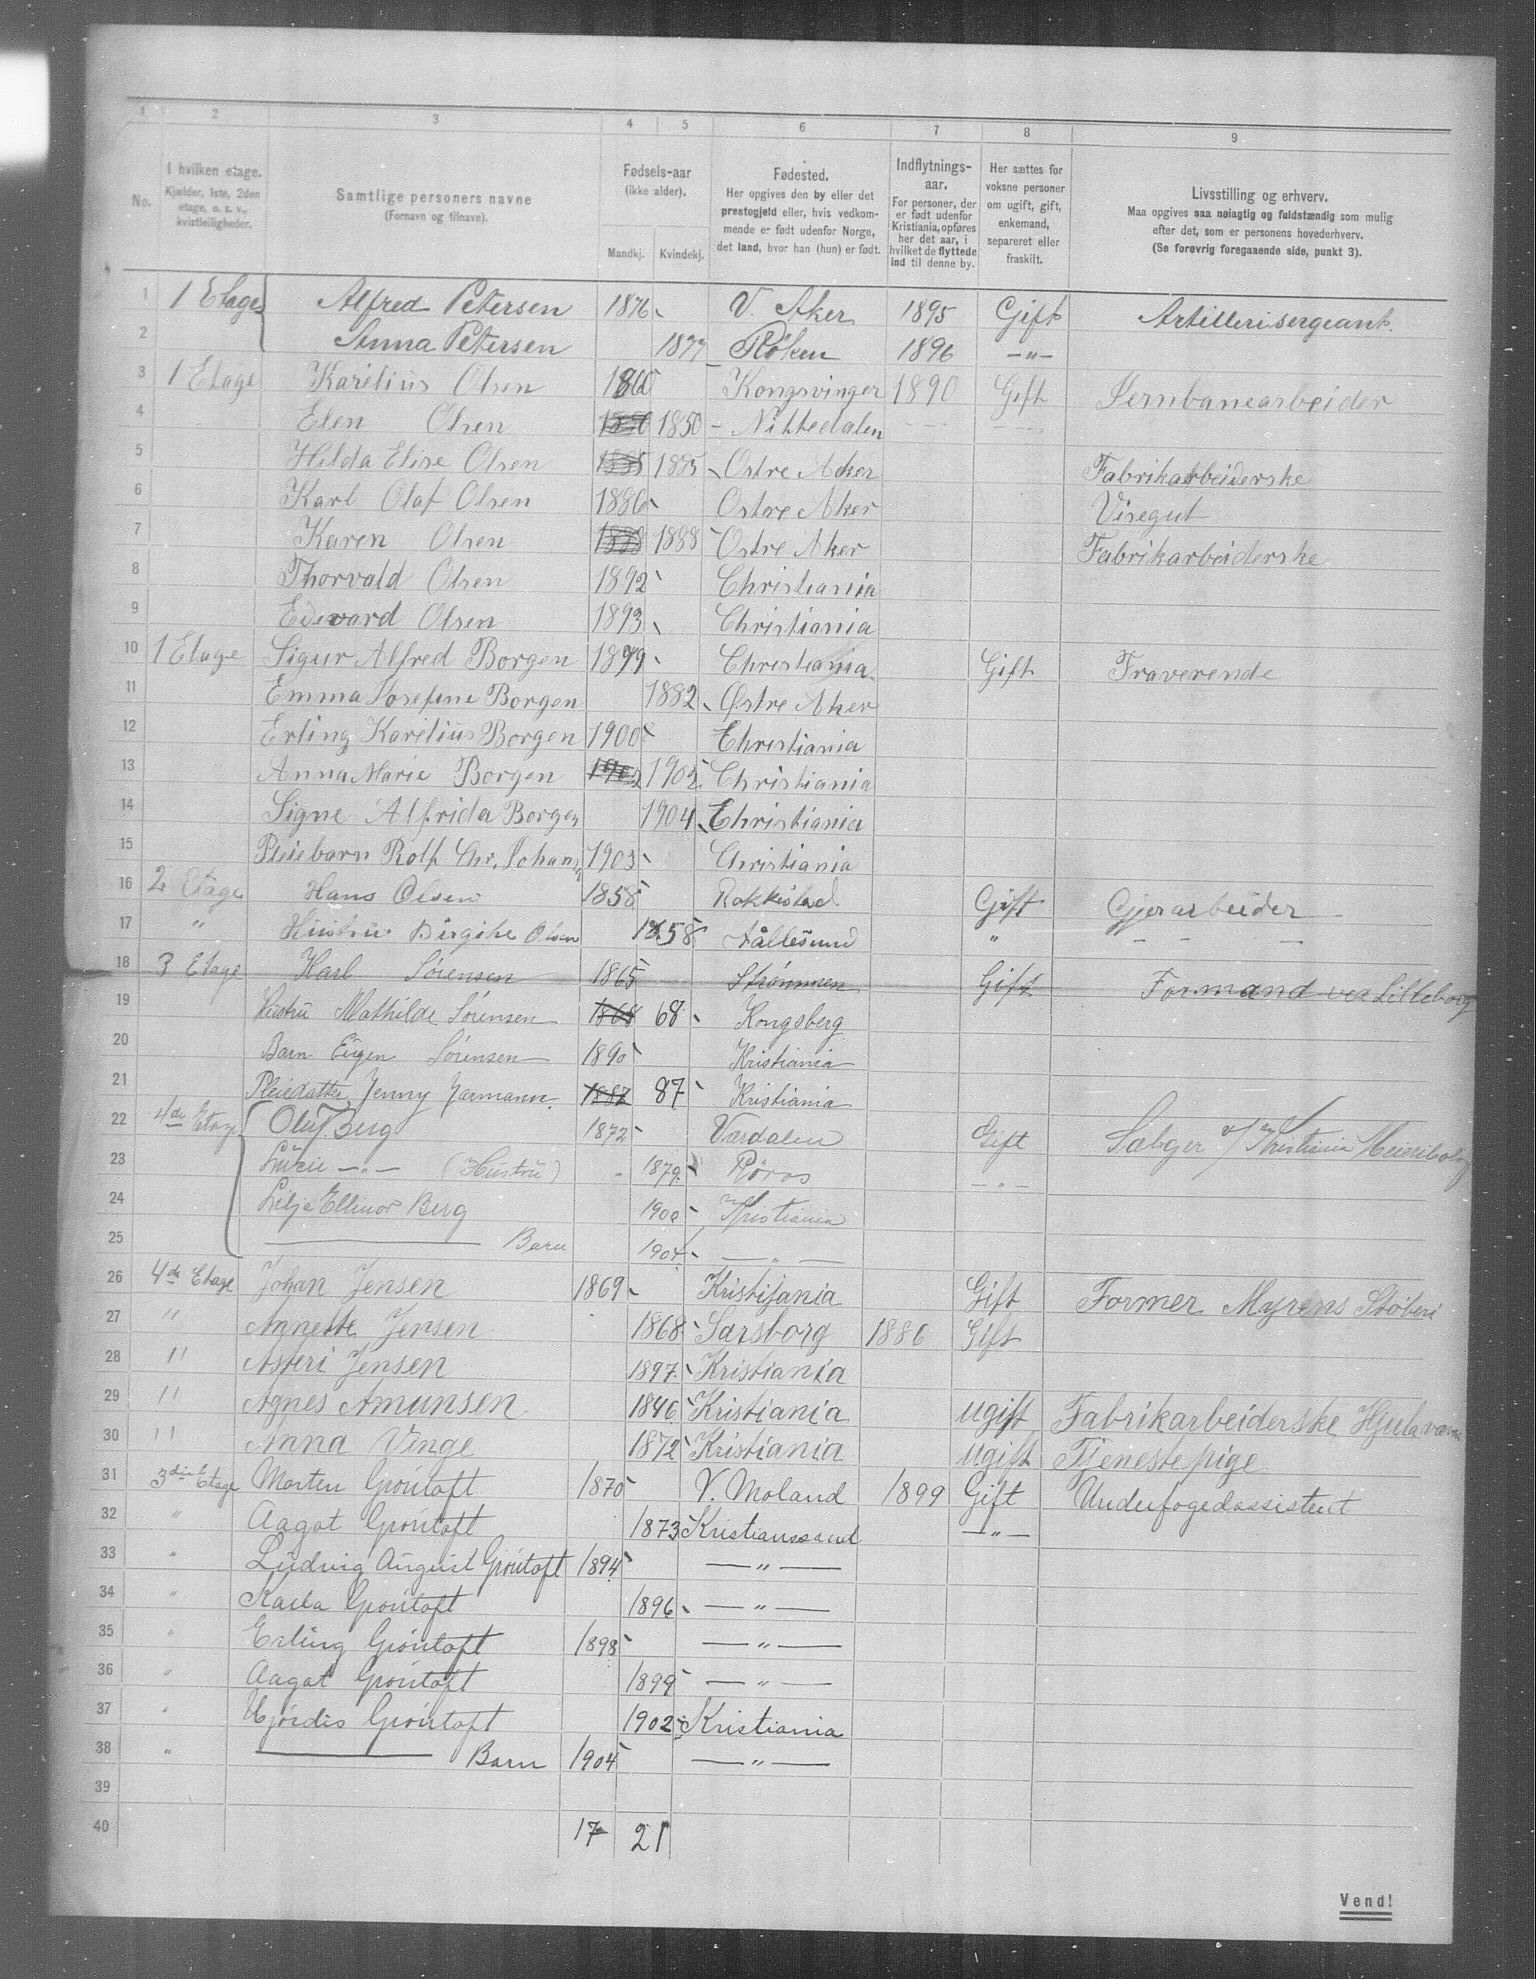 1 2 3 4 5 6 7 8 9
No.
I hvilken etage.
Kjælder, 1ste, 2den
etage, o. s. v.,
kvistleiligheder.
Samtlige personers navne
(Fornavn og tilnavn).
Fødsels-aar
(ikke alder).
Mandkj. Kvindekj.
Fødested.
Her opgives den by eller det
prestegjeld eller, hvis vedkom-
mende er født udenfor Norge,
det land, hvor han (hun) er født.
Indflytnings-
aar.
For personer, der
er født udenfor
Kristiania, opføres
her det aar, i
hvilket de flyttede
ind til denne by.
Her sættes for
voksne personer
om ugift, gift,
enkemand,
separeret eller
fraskilt.
Livsstilling og erhverv.
Maa opgives saa nøiagtig og fuldstændig som mulig
efter det, som er personens hovederhverv.
(Se forøvrig foregaaende side, punkt 3).
1 1 Etage Alfred Petersen 1876 V. Aker 1895 Gift Artillerisergeant.
2 Anna Petersen 1877 Röken 1896 —"—
3 1 Etage Karelius Olsen 1860 Kongsvinger 1890 Gift Jernbanearbeider
4 Elen Olsen 1850 1850 Nittedalen
5 Hilda Elise Olsen 1885 1885 Ostre Aker Fabrikarbeiderske
6 Karl Olaf Olsen 1886 Ostre Aker Visegut
7 Karen Olsen 1888 1888 Ostre Aker Fabrikarbeiderske
8 Thorvald Olsen 1892 Christiania
9 Edevard Olsen 1893 Christiania
10 1 Etage Sigur Alfred Borgen 1879 Christiania Gift Fraverende
11 Emma Josefine Borgen 1882 Østre Aker
12 Erling Karelius Borgen 1900 Christiania
13 Anna Marie Borgen 1902 1902 Christiania
14 Signe Alfrida Borgen 1904 Christiania
15 Pleiebarn Rolf Chr. Johansen 1903 Christiania
16 2 Etage Hans Olsen 1858 Rakkestad Gift Gjerarbeider
17 " Hustru Birgithe Olsen 1858 "
18 3 Etage Karl Sørensen 1865 Strømmen Gift Formand ved Lilleborg
19 Hustru Mathilde Sørensen 1868 68 Kongsberg
20 Barn Eugen Sørensen 1890 Kristiania
21 Pleiedatter Jenny Jarmann 1887 87 Kristiania
22 4de Etage Oluf Berg 1872 Værdalen Gift Sælger v/ Kristiania Meieribolag
23 Luzie —"— (Hustru) 1879 Røros —"—
24 Lilja Ellinor Berg 1900 Kristiania
25 —— Barn 1904 —"—
26 4de Etage Johan Jensen 1869 Kristijania Gift Former Myrens Støberi
27 " Annette Jensen 1868 Sarsborg 1886 Gift
28 " Asteri Jensen 1897 Kristiania
29 " Agnes Amunsen 1846 Kristiania ugift Fabrikarbeiderske
30 " Anna Vinge 1872 Kristiania ugift Tjenestepige
31 3die Etage Morten Grøntoft 1870 V. Moland 1899 Gift Underfogedassistent
32 " Aagot Grøntoft 1873 Kristianssand —"—
33 " Ludvig August Grøntoft 1894 —"—
34 " Karla Grøntoft 1896 —"—
35 " Erling Grøntoft 1898 —"—
36 " Aagot Grøntoft 1899 —"—
37 " Hjørdis Grøntoft 1902 Kristiania
38 " —— Barn 1904 —"—
39
40 17 21
Vend!